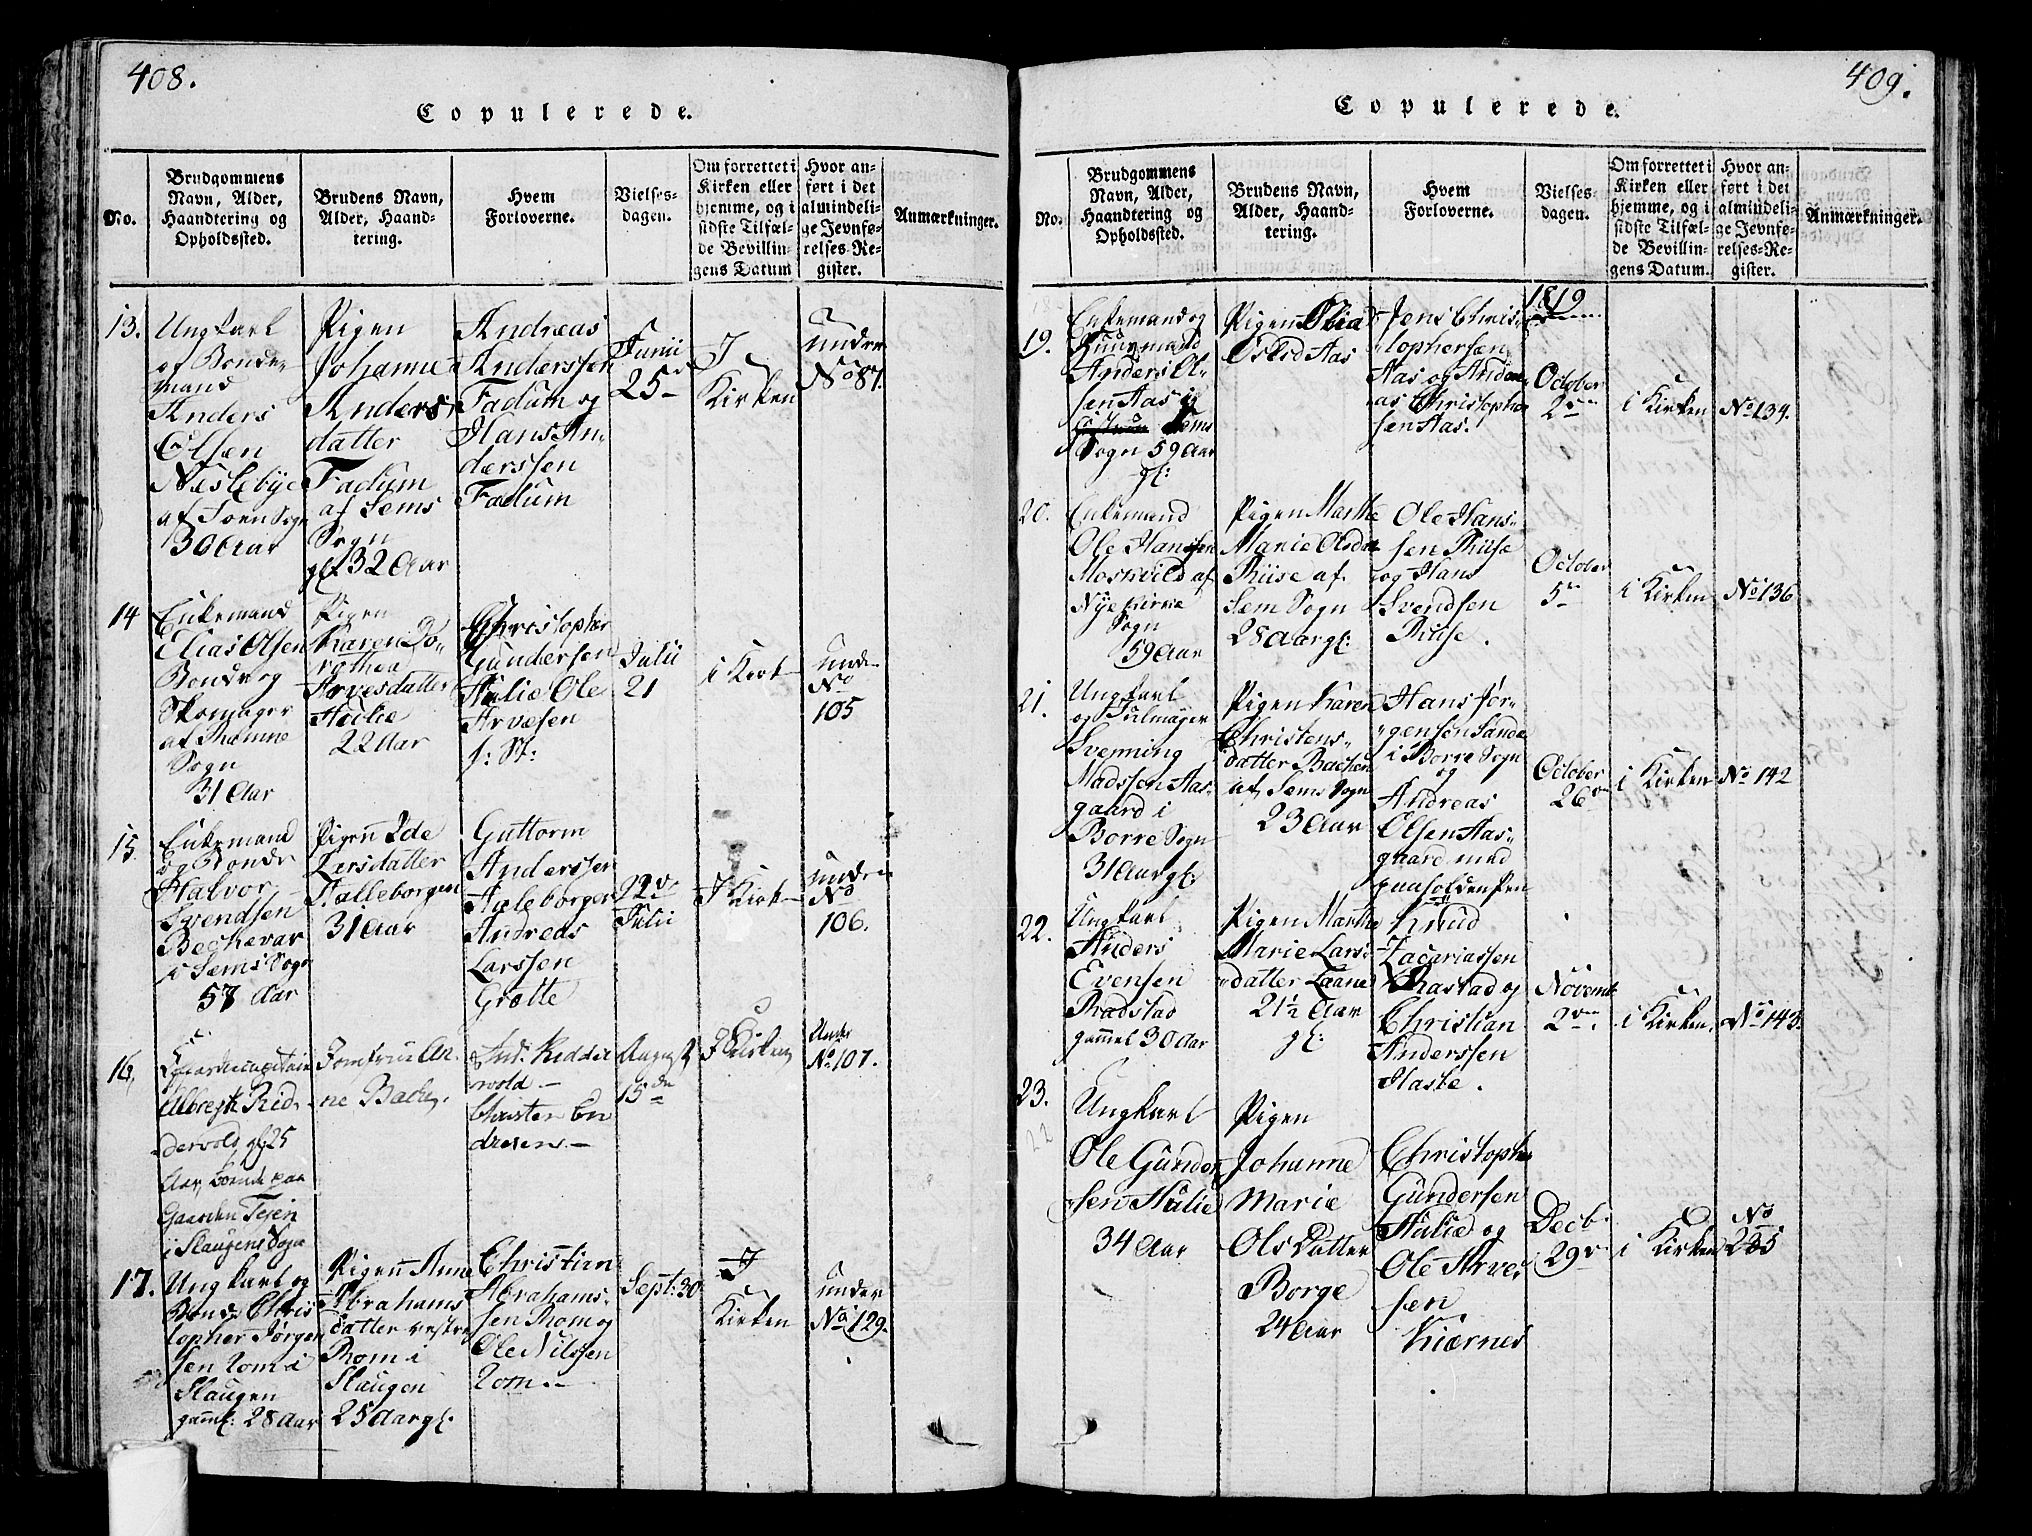 408.
Copulerede.
No.
Brudgommens Navn, Alder, Haandtering og Opholdssted.
Brudens Navn, Alder, Haandtering.
Hvem Forloverne.
Vielsesdagen.
Om forrettet i Kirken eller hjemme, og i sidste Tilfælde Bevillingens Datum
Hvor anført i det almindelige Jevnførelses-Register.
Anmærkninger.
13.
Ungkarl
og Bonde-
mand
Anders
Olsen
Næslebye
af Soen Sogn
30 Aar
Pigen
Johanne
Anders
datter
Fadum
af Sems
Sogn
gl 32 Aar
Andreas
Anderssen
Fadum og
Hans An-
derssen
Fadum
Junii
25
I
Kirken
under
No 87.
14
Enkemand
Elias Olsen
Bonde og
Skomager
af Ramne
Sogn
31 Aar
Pigen
Karen Do-
rothea
Arvesdatter
Hulie
22 Aar
Christopher
Gundersen
Hulie Ole
Arvesen
s: St:
Julii
21
i Kirk
unde
No
105
15.
Enkemand
og Bonde
Halvor
Svendsen
Bechevar
i Sems Sogn
57 Aar
Pigen Ide
Larsdatter
Falleborgen
31 Aar
Guttorm
Anderssen
Andreas
Larssen
Grotte
22
Julii
I Kirk
under
No
106.
16,
Albregt Rid-
dervold gl 25
Aar, boende paa
Gaarden Tejen
i Slaugens Sogn
Jomfrue An-
ne Bache,
And. Ridder
vold –
Christen En
dresens. –
August
15
I Kirken
Under
No 107.
17.
Ungkarl og
Bonde Chris
topher Jørgen
sen Rom i
Slaugen
gaml: 28 Aar
Pigen Anne
Abrahams
datter vestre
Rom i
Slaugen
25 Aar gl.
Christian
Abrahams-
sen Rom og
Ole Nilssen
Rom. –
Sept: 30
I
Kirken
under
No 129.
409.
Copulerede.
No.
Brudgommens Navn, Alder, Haandtering og Opholdssted.
Brudens Navn, Alder, Haandtering.
Hvem Forloverne.
Vielsesdagen.
Om forrettet i Kirken eller hjemme, og i sidste Tilfælde Bevillingens Datum.
Hvor anført i det almindelige Jevnførelses-Register.
Anmærkninger.
1819
19.
Enkemand og
Huusmand
Anders Ol-
sen Aas i
Sems
Sogn 59 Aar
gl:
Pigen Olia
Olsd Aas
Jens Chris-
tophersen
Aas og Andre
as Christopher
sen Aas.
October
2
i Kirken
No 134.
20.
Enkemand
Ole Hanssen
Moskvild af
Nykirke
Sogn
59 Aar
Pigen Marthe
Marie Olsda
Riise af
Sem Sogn
28 Aar gl.
Ole Hans-
sen Riise
og Hans
Svendsen
Riise.
October
5
i Kirken
No 136
21.
Ungkarl
Svenning
Madssen Aas-
gaard i
Borre Sogn
31 Aar gl.
Pigen Karen
Christens-
datter Bassen
af Sems Sogn
23 Aar
Hans Jør-
gensøn Sande
i Borre Sogn
og
Andreas
Olsen Aas-
gaard med
paaholden Pen
October
26
i Kirken
No 142
22.
Ungkarl
Anders
Evensen
Radstad
gammel 30 Aar
Pigen Marthe
Marie Lars-
datter Laane
21½ Aar
gl:
Knud
Zacariassen
Rastad og
Christian
Anderssen
Haske.
Novemb
2
i Kirken,
No 143.
23.
22
Ungkarl
Ole Gunder
sen Hulie
34 Aar
Pigen
Johanne
Marie
Ols Datter
Borge
24 Aar
Christopher
Gundersen
Hulie og
Ole Arve
sen
Kiærnes
Decb.
29
i Kirken
No
235